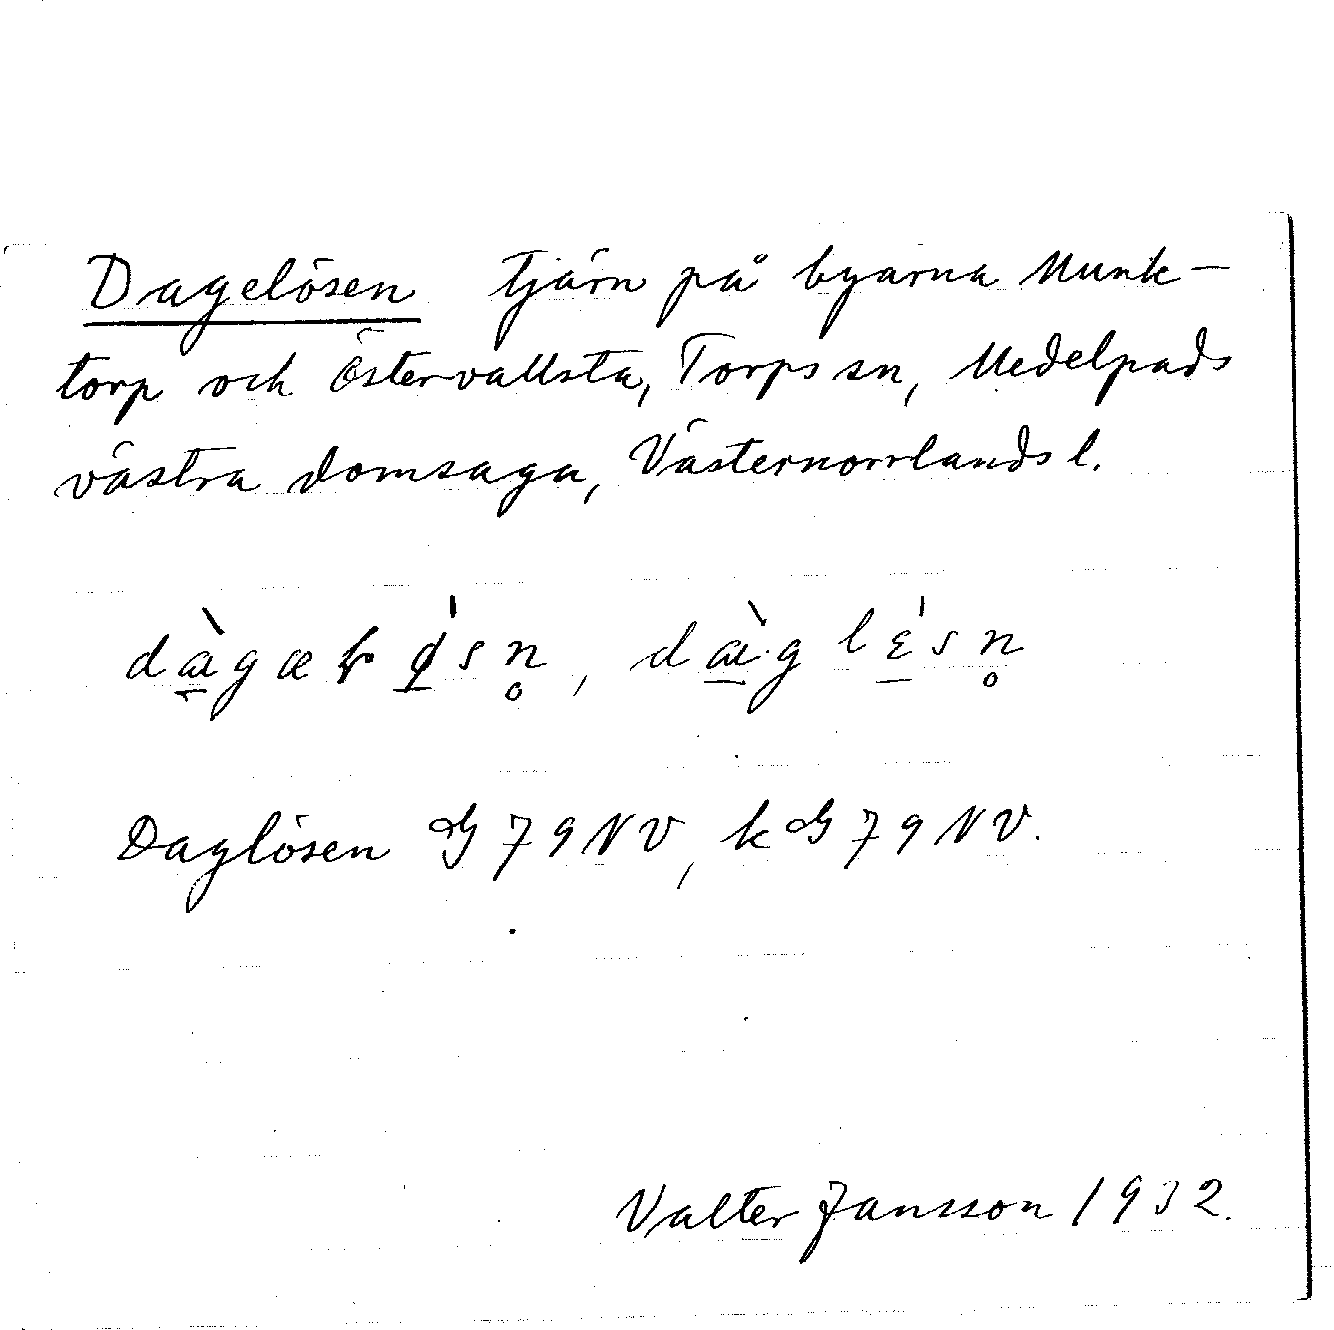 Dagelösen tjärn på byarna Munk-
torp och Östervallsta, Torps sn, Medelpads
västra domsaga, Västernorrlands l.
Daglösen G 79 NV, k G 79 NV.
Valter Jansson 1932.